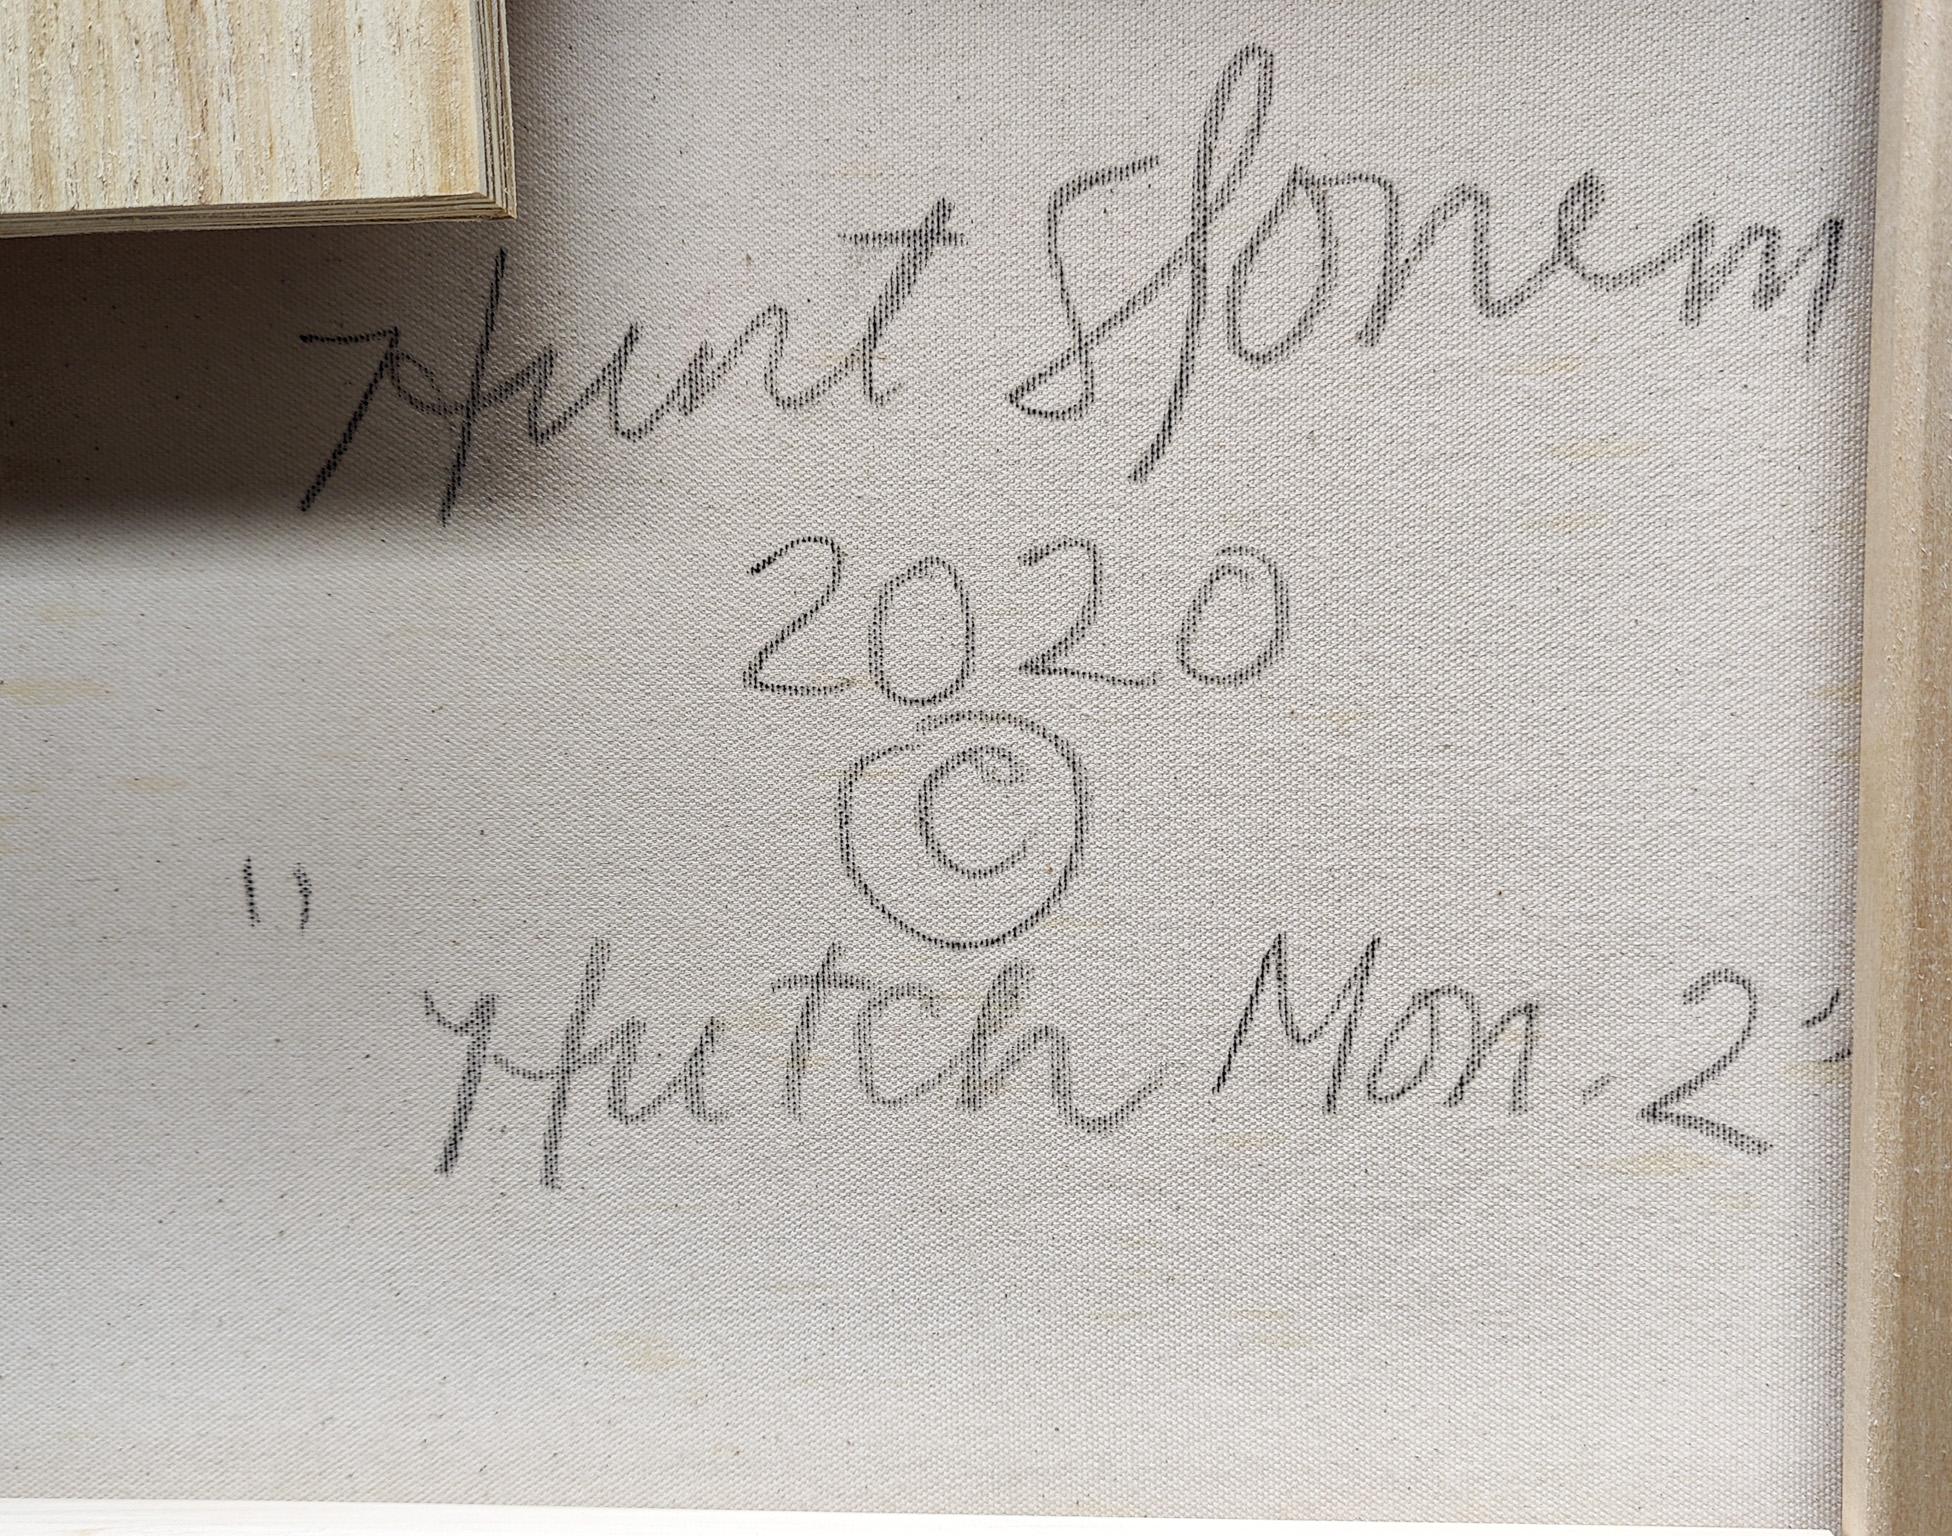 Hunt Slonem
2020
©
"Hutch Mon. 2"